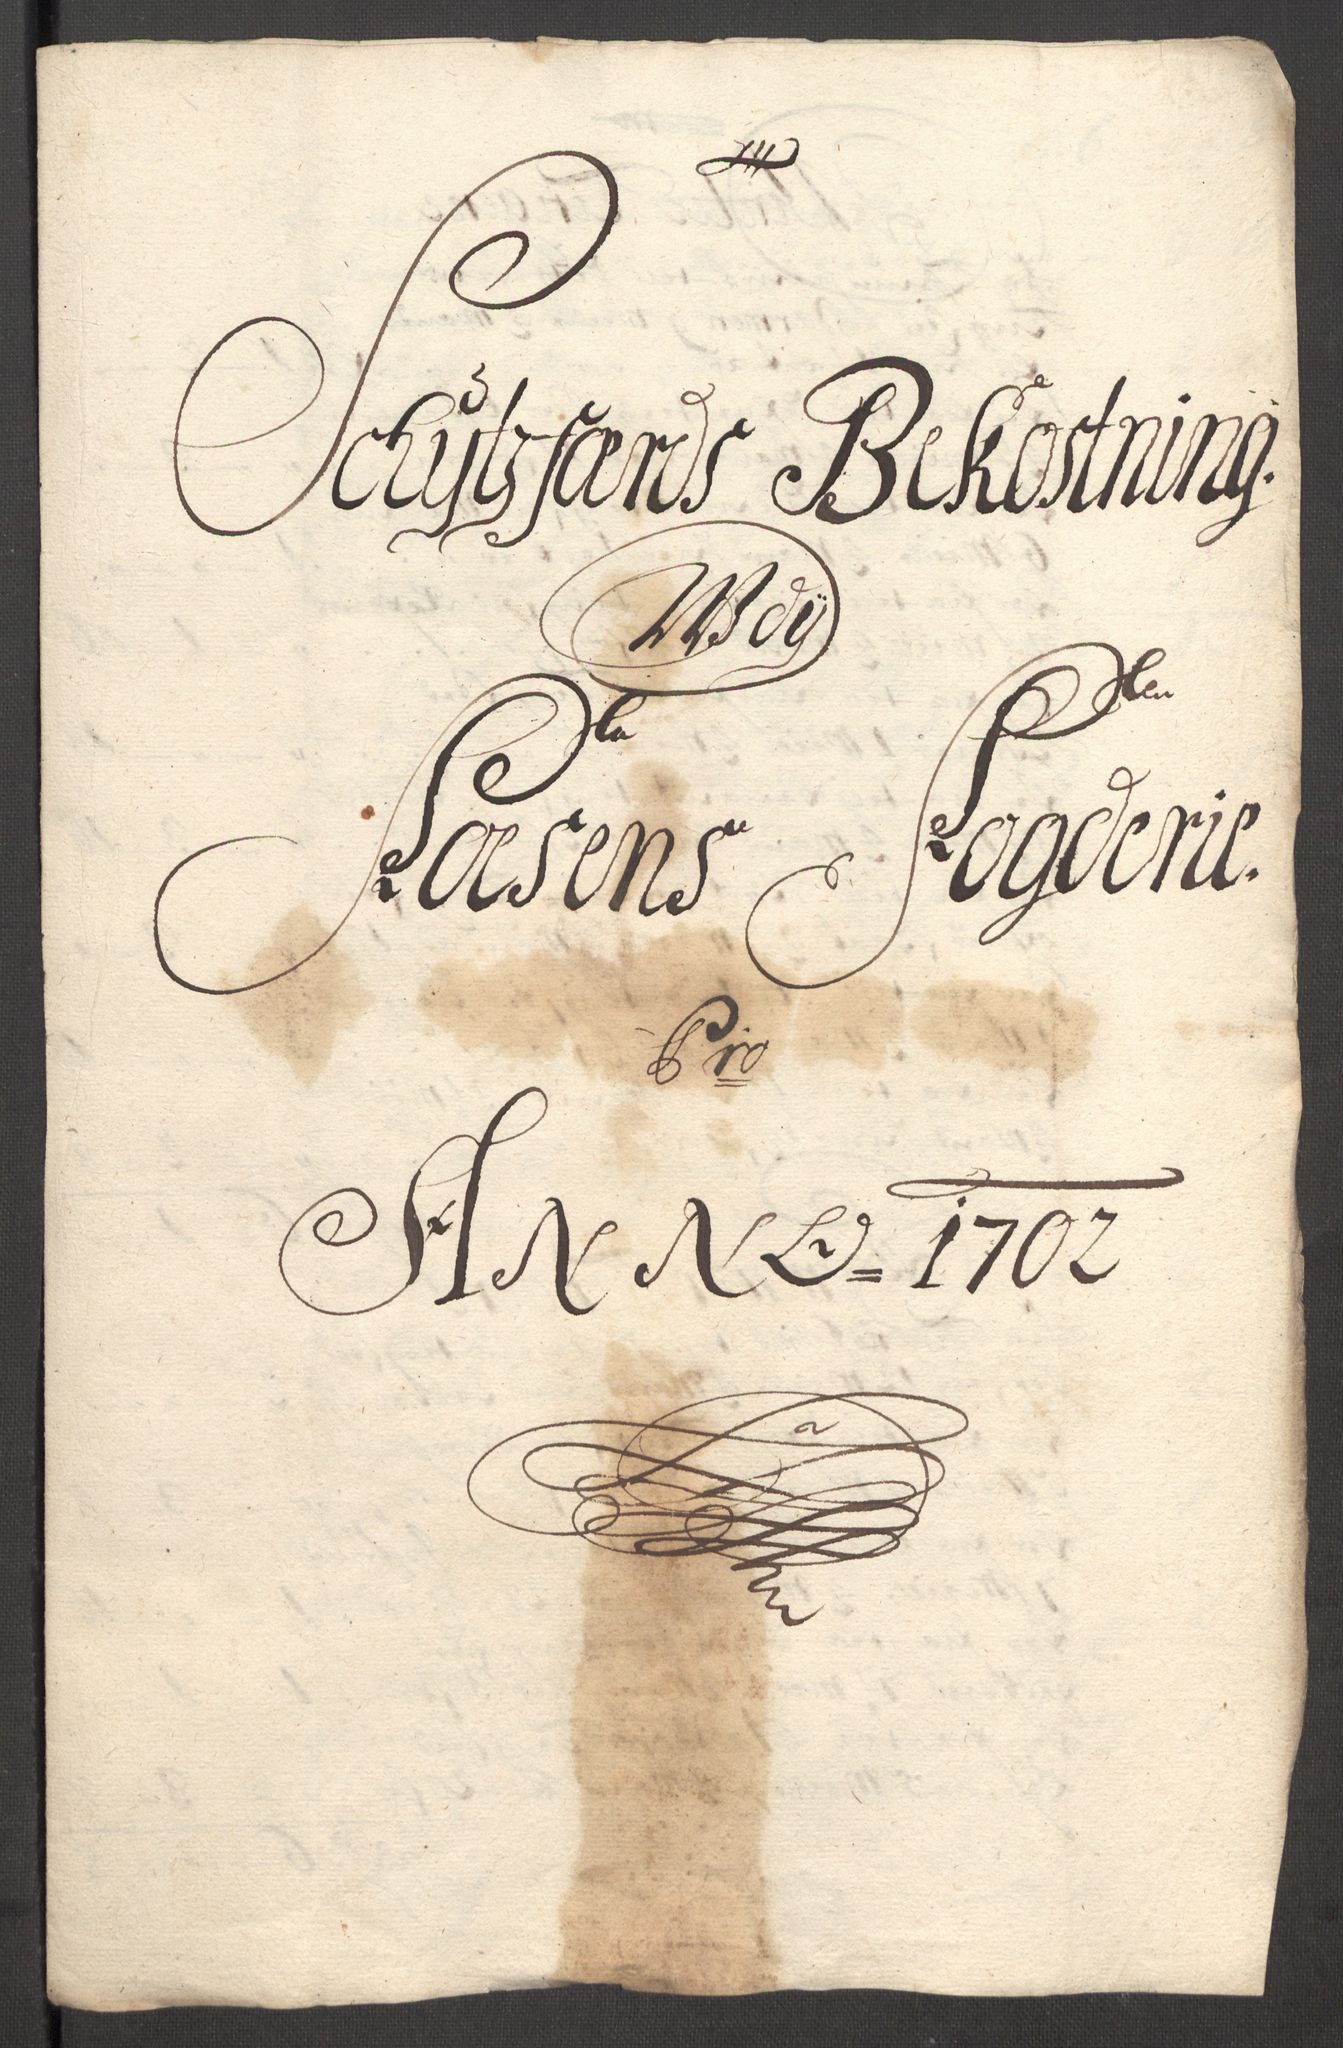 Schÿtzfærds Bekostning.
Udÿ
Fosens Fogderie.
Pro
ANNO = 1702